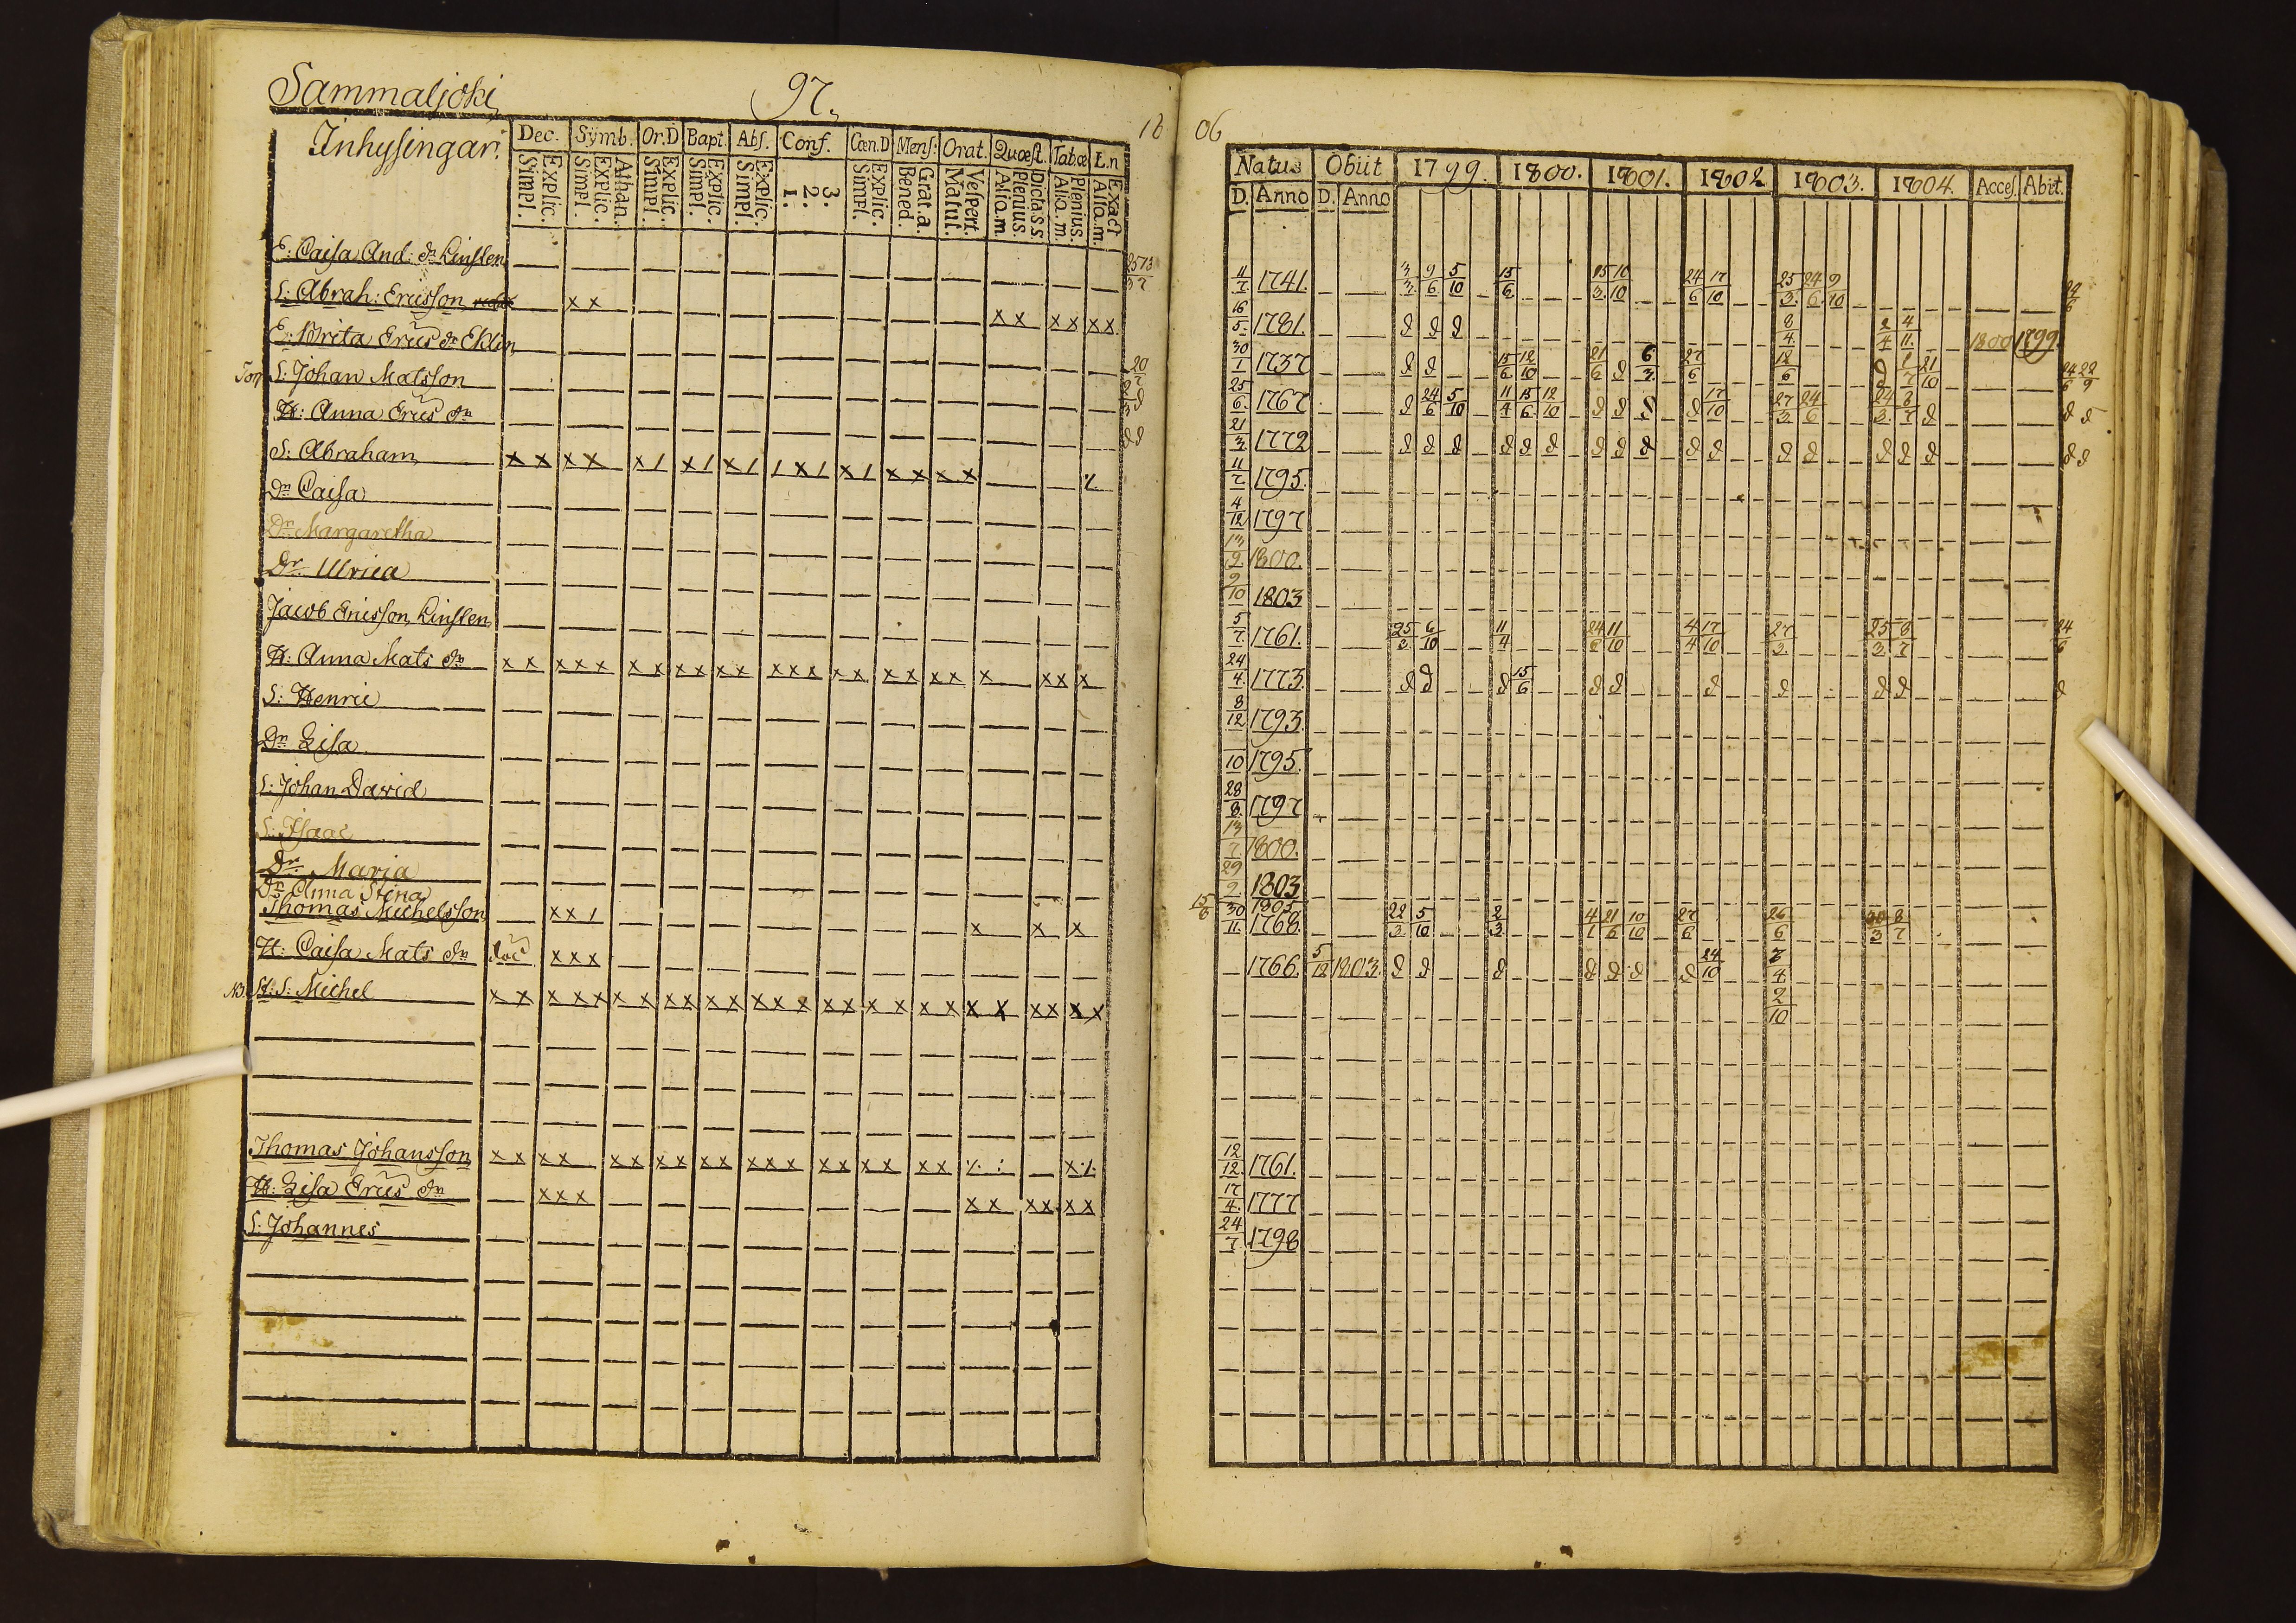 Sammaljoki 97.
Inhysingar.
Dec. Symb. Or.D Bapt. Abs. Conf. Cœn.D Mens: Orat. Quœst. Tab.œ L.n
Simpl. Explic. Simpl. Explic. Athan. Simpl. Explic. Simpl. Explic. Simpl. Explic. 1. 2. 3. Simpl. Explic. Bened. Grat.a. Matut. Vespert. Alia.m. Plenius. Dicta.s.s. Alia.m. Plenius. Alia.m. Exact
E: Caisa And: dr Linsten
S: Abrah: Ericsson
x x x x x x x x
E: Brita Erics dr Eklin
S: Johan Matsson
H: Anna Erics dr
S: Abraham x x x x x / x / x / / x / x / x x x x
Dr Caisa
Dr Margaretha
Dr Ulrica
Jacob Ericsson Linsten
H: Anna Mats dr x x x x x x x x x x x x x x x x x x x x x x x x
S: Henric
Dr Lisa
S: Johan David
S: Isaac
Dr Maria
Dr Anna Stina
Thomas Michelsson x x / x x x
H: Caisa Mats dr x x x
NB. H: S: Michel x x x x x x x x x x x x x x x x x x x x x x x x x x x
Thomas Johansson x x x x x x x x x x x x x x x x x x x x
H: Lisa Erics dr x x x x x x x x x
S: Johannes
18 06
Natus Obiit 1799. 1800. 1801. 1802 1803. 1804. Acces. Abit.
D. Anno D. Anno
11/7 1741. 9/6 5/10 15/6 24/6 17/10 25/3 24/6 9/10
16/5 1781. d d d 8/4 2/4 4/11 1800 1799.
30/1 1737 d d 15/6 12/10 21/6 d 6/3 27/6 18/6
25/6 1767 d 24/6 5/10 11/4 15/6 12/10 d d d d 17/10 27/3 24/6 24/3 8/7 d
21/3 1772 d d d d d d d d d d d d d d d d
11/7 1795.
4/12 1797
13/2 1800.
9/10 1803
5/7 1761. 25/3 6/10 11/4 24/6 11/10 4/4 17/10 27/3 25/3 8/7 24/6
24/4 1773. d d d 15/6 d d d d d d d
8/12 1793.
10 1795.
28/8 1797
13/7 1800.
29/2 1803
15/8 1805
30/11 1768. 22/3 5/10 2/3 4/1 21/6 10/10 27/6 26/6 8/7
1766. 5/12 1803. d d d d d d d 24/10
2/10
12/12 1761.
17/4 1777
24/7 1798